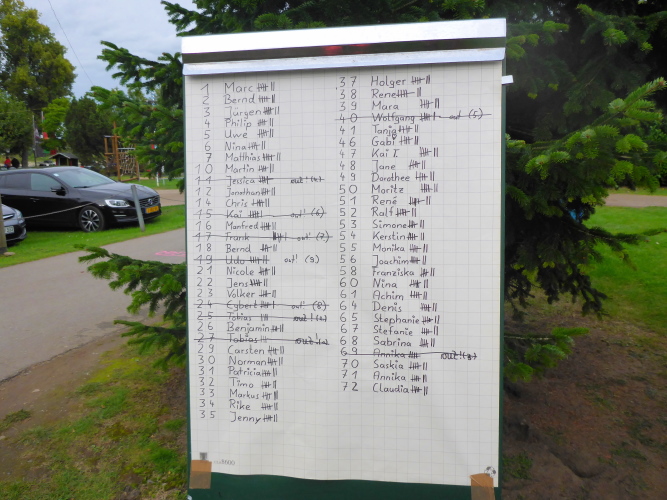 1 Marc 卌 ||
2 Bernd 卌 ||
3 Jürgen 卌 ||
4 Philip 卌 ||
5 Uwe 卌 ||
6 Nina 卌 ||
7 Matthias 卌 ||
10 Martin 卌 ||
11 Jessica out!
12 Jonathan 卌 ||
14 Chris 卌 ||
15 Kai 卌 | out! (6)
16 Manfred 卌 ||
17 Frank out! (7)
18 Bernd 卌 ||
19 Udo out!
21 Nicole 卌 ||
22 Jens 卌 ||
23 Volker 卌 ||
24 out! (8)
25 Tobias out!
26 Benjamin 卌 ||
27 Tobias out!
29 Carsten 卌 ||
30 Norman 卌 ||
31 Patricia 卌 ||
32 Timo 卌 ||
33 Markus 卌 ||
34 Rike 卌 ||
35 Jenny 卌 ||
37 Holger 卌 ||
38 Rene 卌 ||
39 Mara 卌 ||
40 Wolfgang 卌 | out (5)
41 Tanja 卌 ||
46 Gabi 卌 ||
47 Kai I 卌 ||
48 Jane 卌 ||
49 Dorothee 卌 ||
50 Moritz 卌 ||
51 René 卌 ||
52 Ralf 卌 ||
53 Simone 卌 ||
54 Kerstin 卌 ||
55 Monika 卌 ||
56 Joachim 卌 ||
58 Franziska 卌 ||
60 Nina 卌 ||
61 Achim 卌 ||
64 Denis 卌 ||
65 Stephanie 卌 ||
67 Stefanie 卌 ||
68 Sabrina 卌 ||
69 Annika out!
70 Saskia 卌 ||
71 Annika 卌 ||
72 Claudia 卌 ||